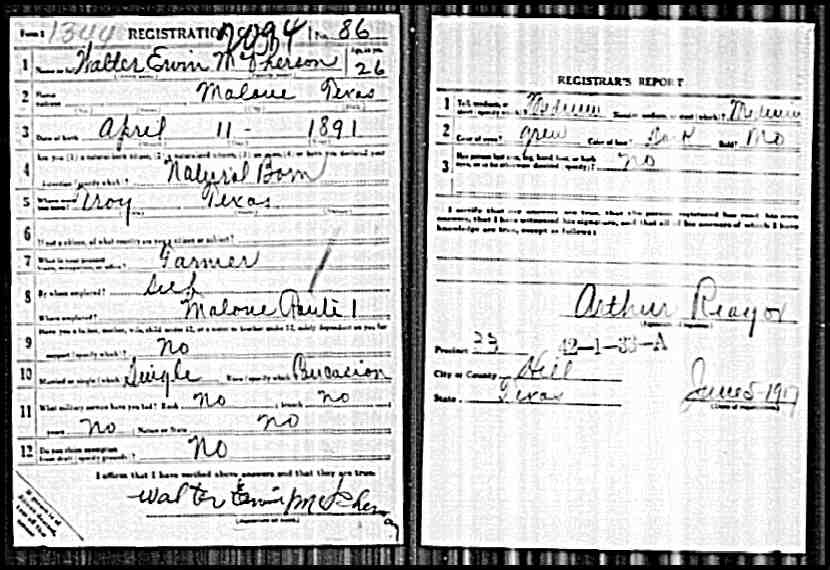 Form 1 1344 REGISTRATION No. 86
1 Walter Erwin McPherson Age, in yrs. 26
2 Home address Malone Texas
3 Date of birth April 11 - 1891
Are you (1) a natural born citizen, (2) a naturalized citizen, (3) an alien, (4) or have you declared your
4 intention (specify which)? Natural Born
5 Where were you born? Troy Texas
6 If not a citizen, of what country are you a citizen or subject?
7 What is your present trade, occupation, or office? Farmer
8 By whom employed? Self
Where employed? Malone Route 1
Have you a father, mother, wife, child under 12, or a sister or brother under 12, solely dependent on you for
9 support (specify which)? No
10 Married or single (which)? Single Race (specify which)?
11 What military service have you had? Rank No ; branch No
years No ; Nation or State No
12 Do you claim exemption from draft (specify grounds)? No
I affirm that I have verified above answers and that they are true.
Walter Erwin McPherson
REGISTRAR'S REPORT
1 Tall, medium, or short (specify which)? Medium Slender, medium, or stout (which)? Medium
2 Color of eyes? Color of hair? Bald? No
3 Has person lost arm, leg, hand, foot, or both No
I certify that my answers are true, that the person registered has read his own
answers, that I have witnessed his signature, and that all of his answers of which I have
knowledge are true, except as follows:
Arthur
Precinct 23 42-1-33-A
City or County Hill
State Texas June 5-1917